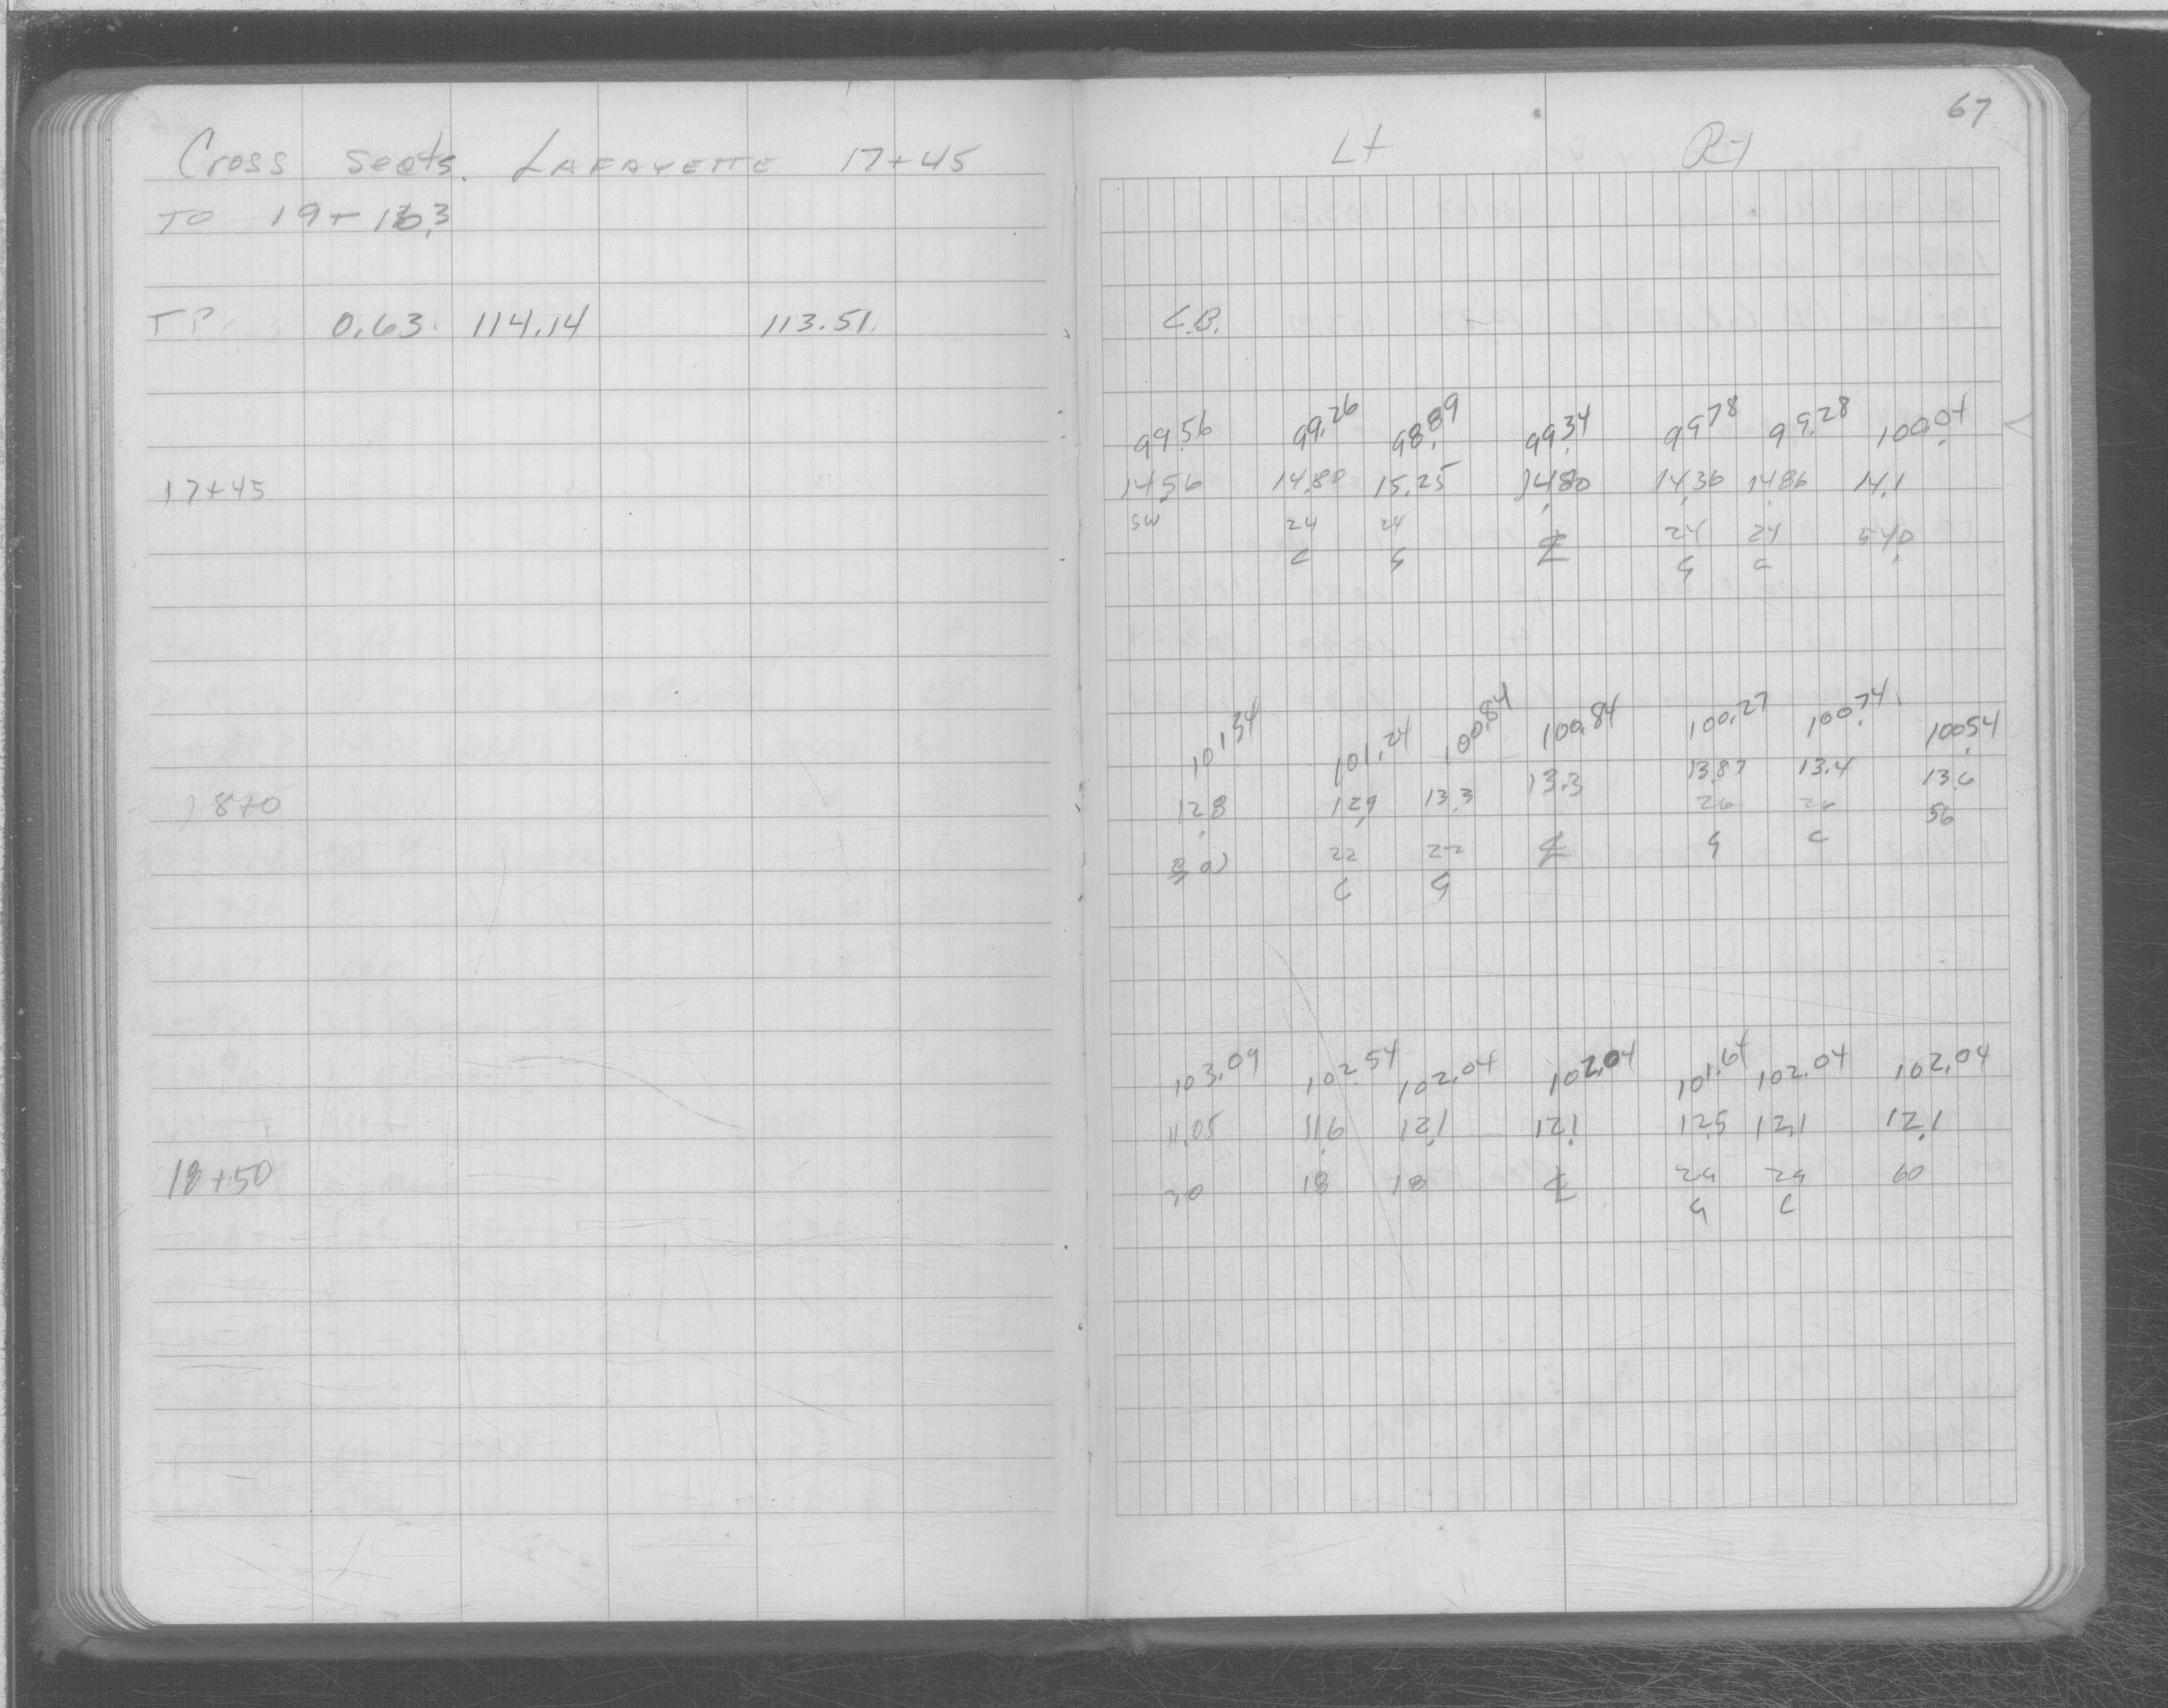 67
Cross Sects. LAFAYETTE 17+45
TO 19+13.3
Lt Rt
TP. 0.63 114.14 113.51 C.B.
99.56 99.26 98.89 99.34 99.78 99.28 100.04
17+45 14.56 14.80 15.25 14.80 14.36 14.86 14.1
SW 24 24 ℄ 24 24 54.0
C G G C
101.34 101.24 100.84 100.84 100.27 100.74 100.54
18+0 12.8 12.9 13.3 13.3 13.87 13.4 13.6
SW 22 22 ℄ 26 26 56
C G G C
103.09 102.54 102.04 102.04 101.64 102.04 102.04
11.05 11.6 12.1 12.1 12.5 12.1 12.1
18+50 30 18 18 ℄ 29 29 60
G C